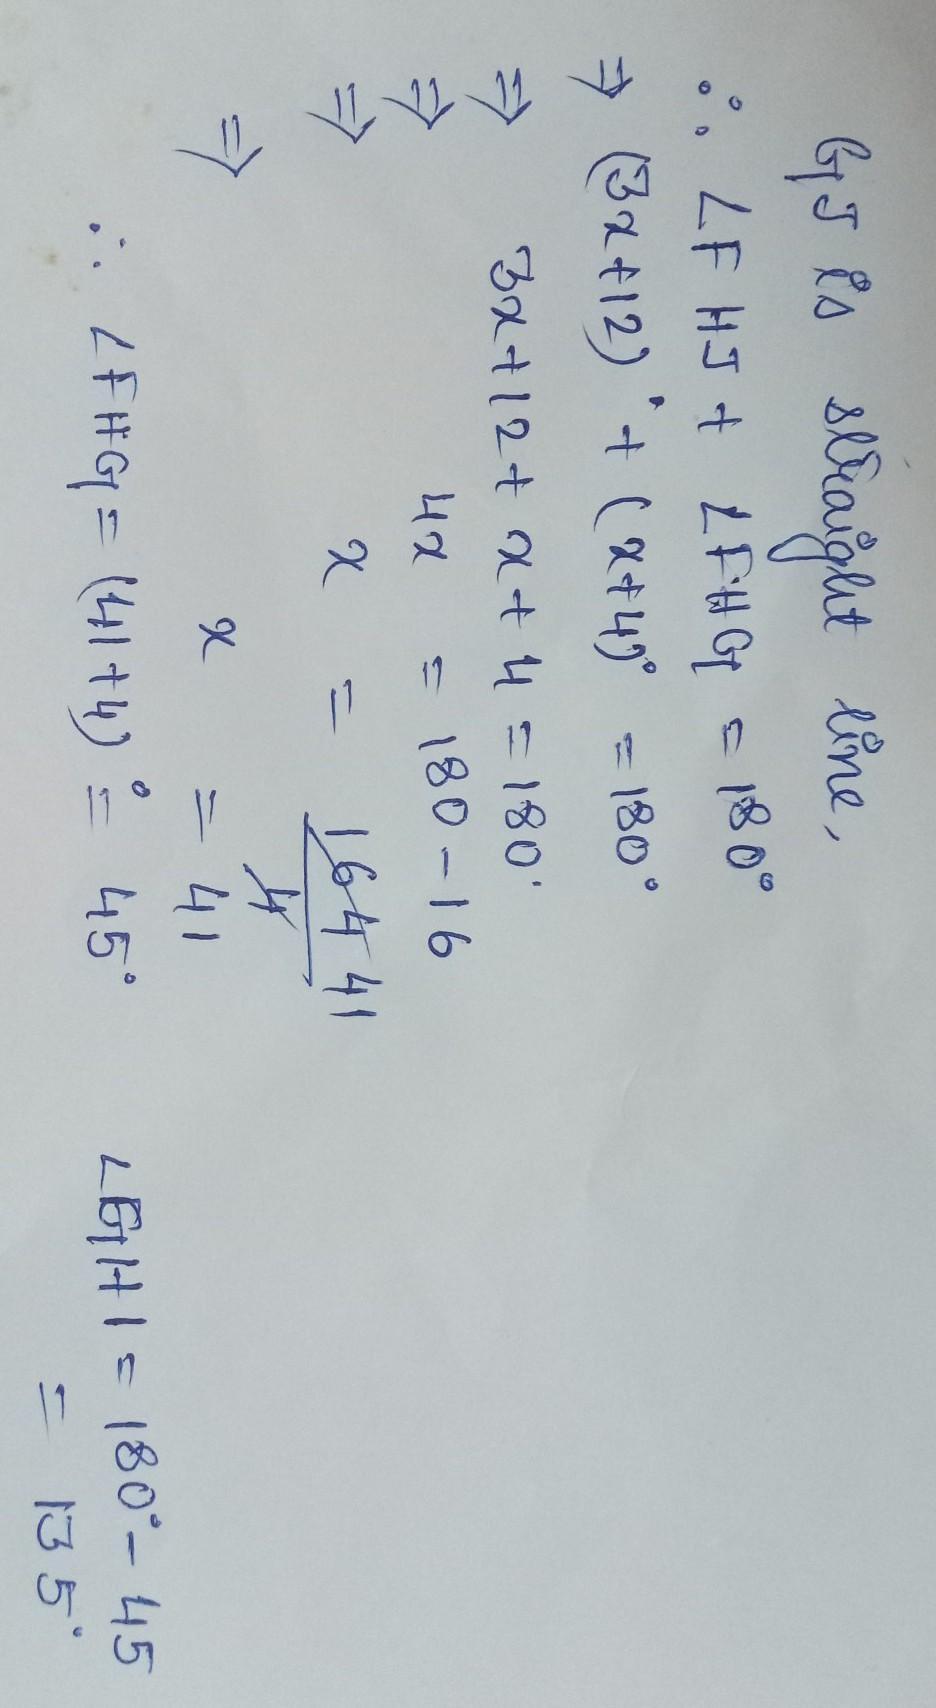 GJ is straight line,
∴ ∠FHJ + ∠FHG = 180°
⇒ (3x+12)° + (x+4)° = 180°
⇒ 3x+12+x+4 = 180
⇒ 4x = 180-16
⇒ x = 164/4 41
⇒ x = 41
∴ ∠FHG = (41+4)° = 45°
∠GHI = 180° - 45
= 135°